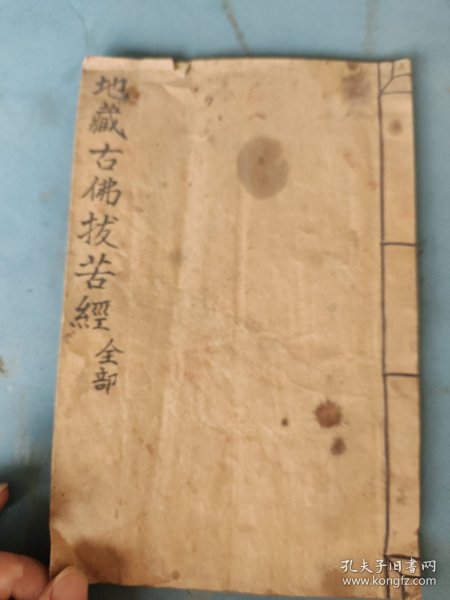 地藏古佛拔苦經 全部
孔夫子旧书网
www.kongfz.com